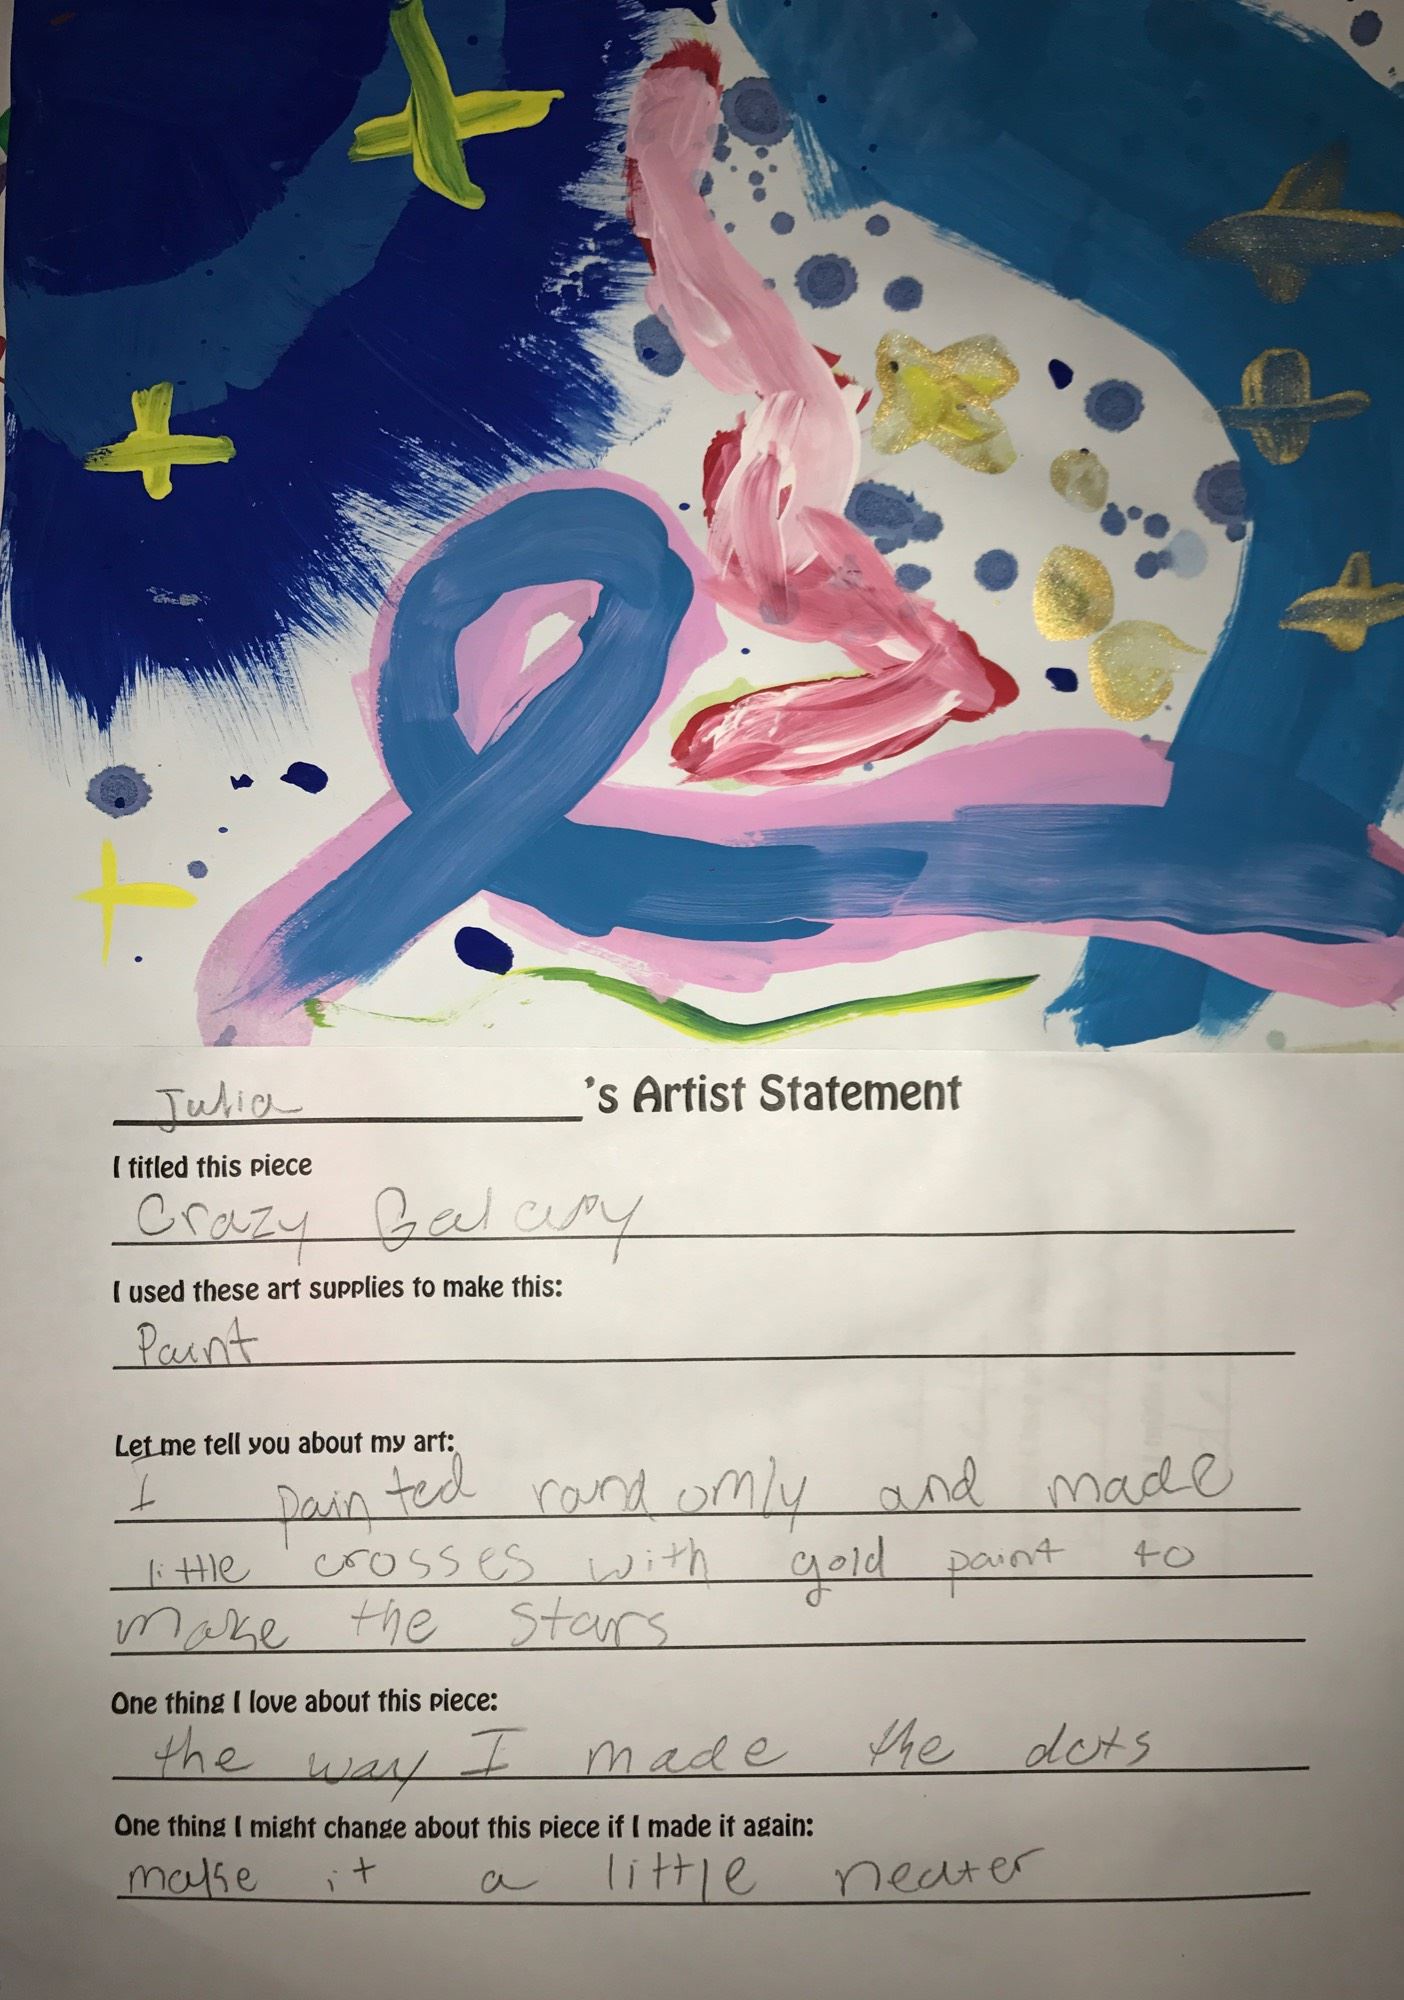 Julia 's Artist Statement
I titled this piece
Crazy Galaxy
I used these art supplies to make this:
Paint
Let me tell you about my art:
I painted randomly and made
little crosses with gold paint to
make the stars
One thing I love about this piece:
the way I made the dots
One thing I might change about this piece if I made it again:
make it a little neater